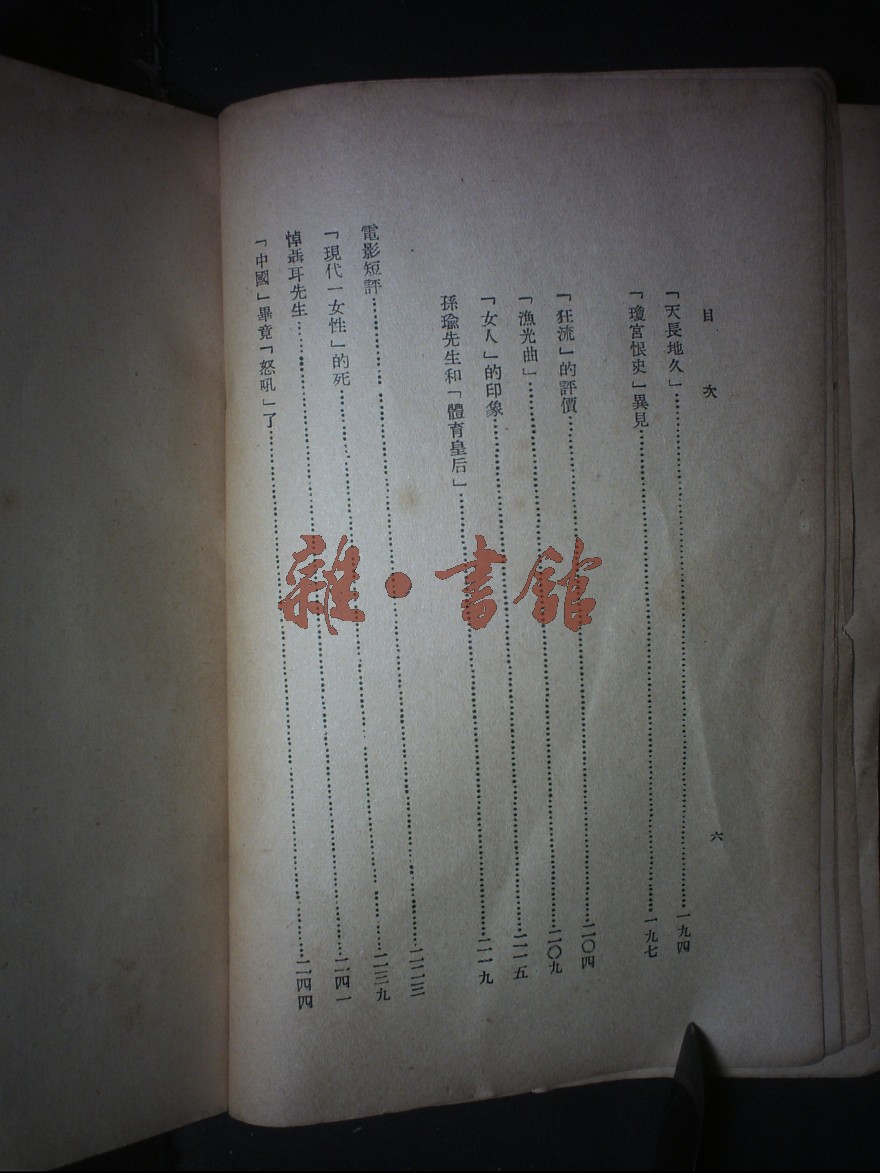 目次 六
「天長地久」……一九四
「瓊宮恨史」異見……一九七
「狂流」的評價……二〇四
「漁光曲」……二〇九
「女人」的印象……二一五
孫瑜先生和「體育皇后」……二一九
電影短評……二二三
「現代一女性」的死……二三九
悼聶耳先生……二四一
「中國」畢竟「怒吼」了……二四四
雜·書館